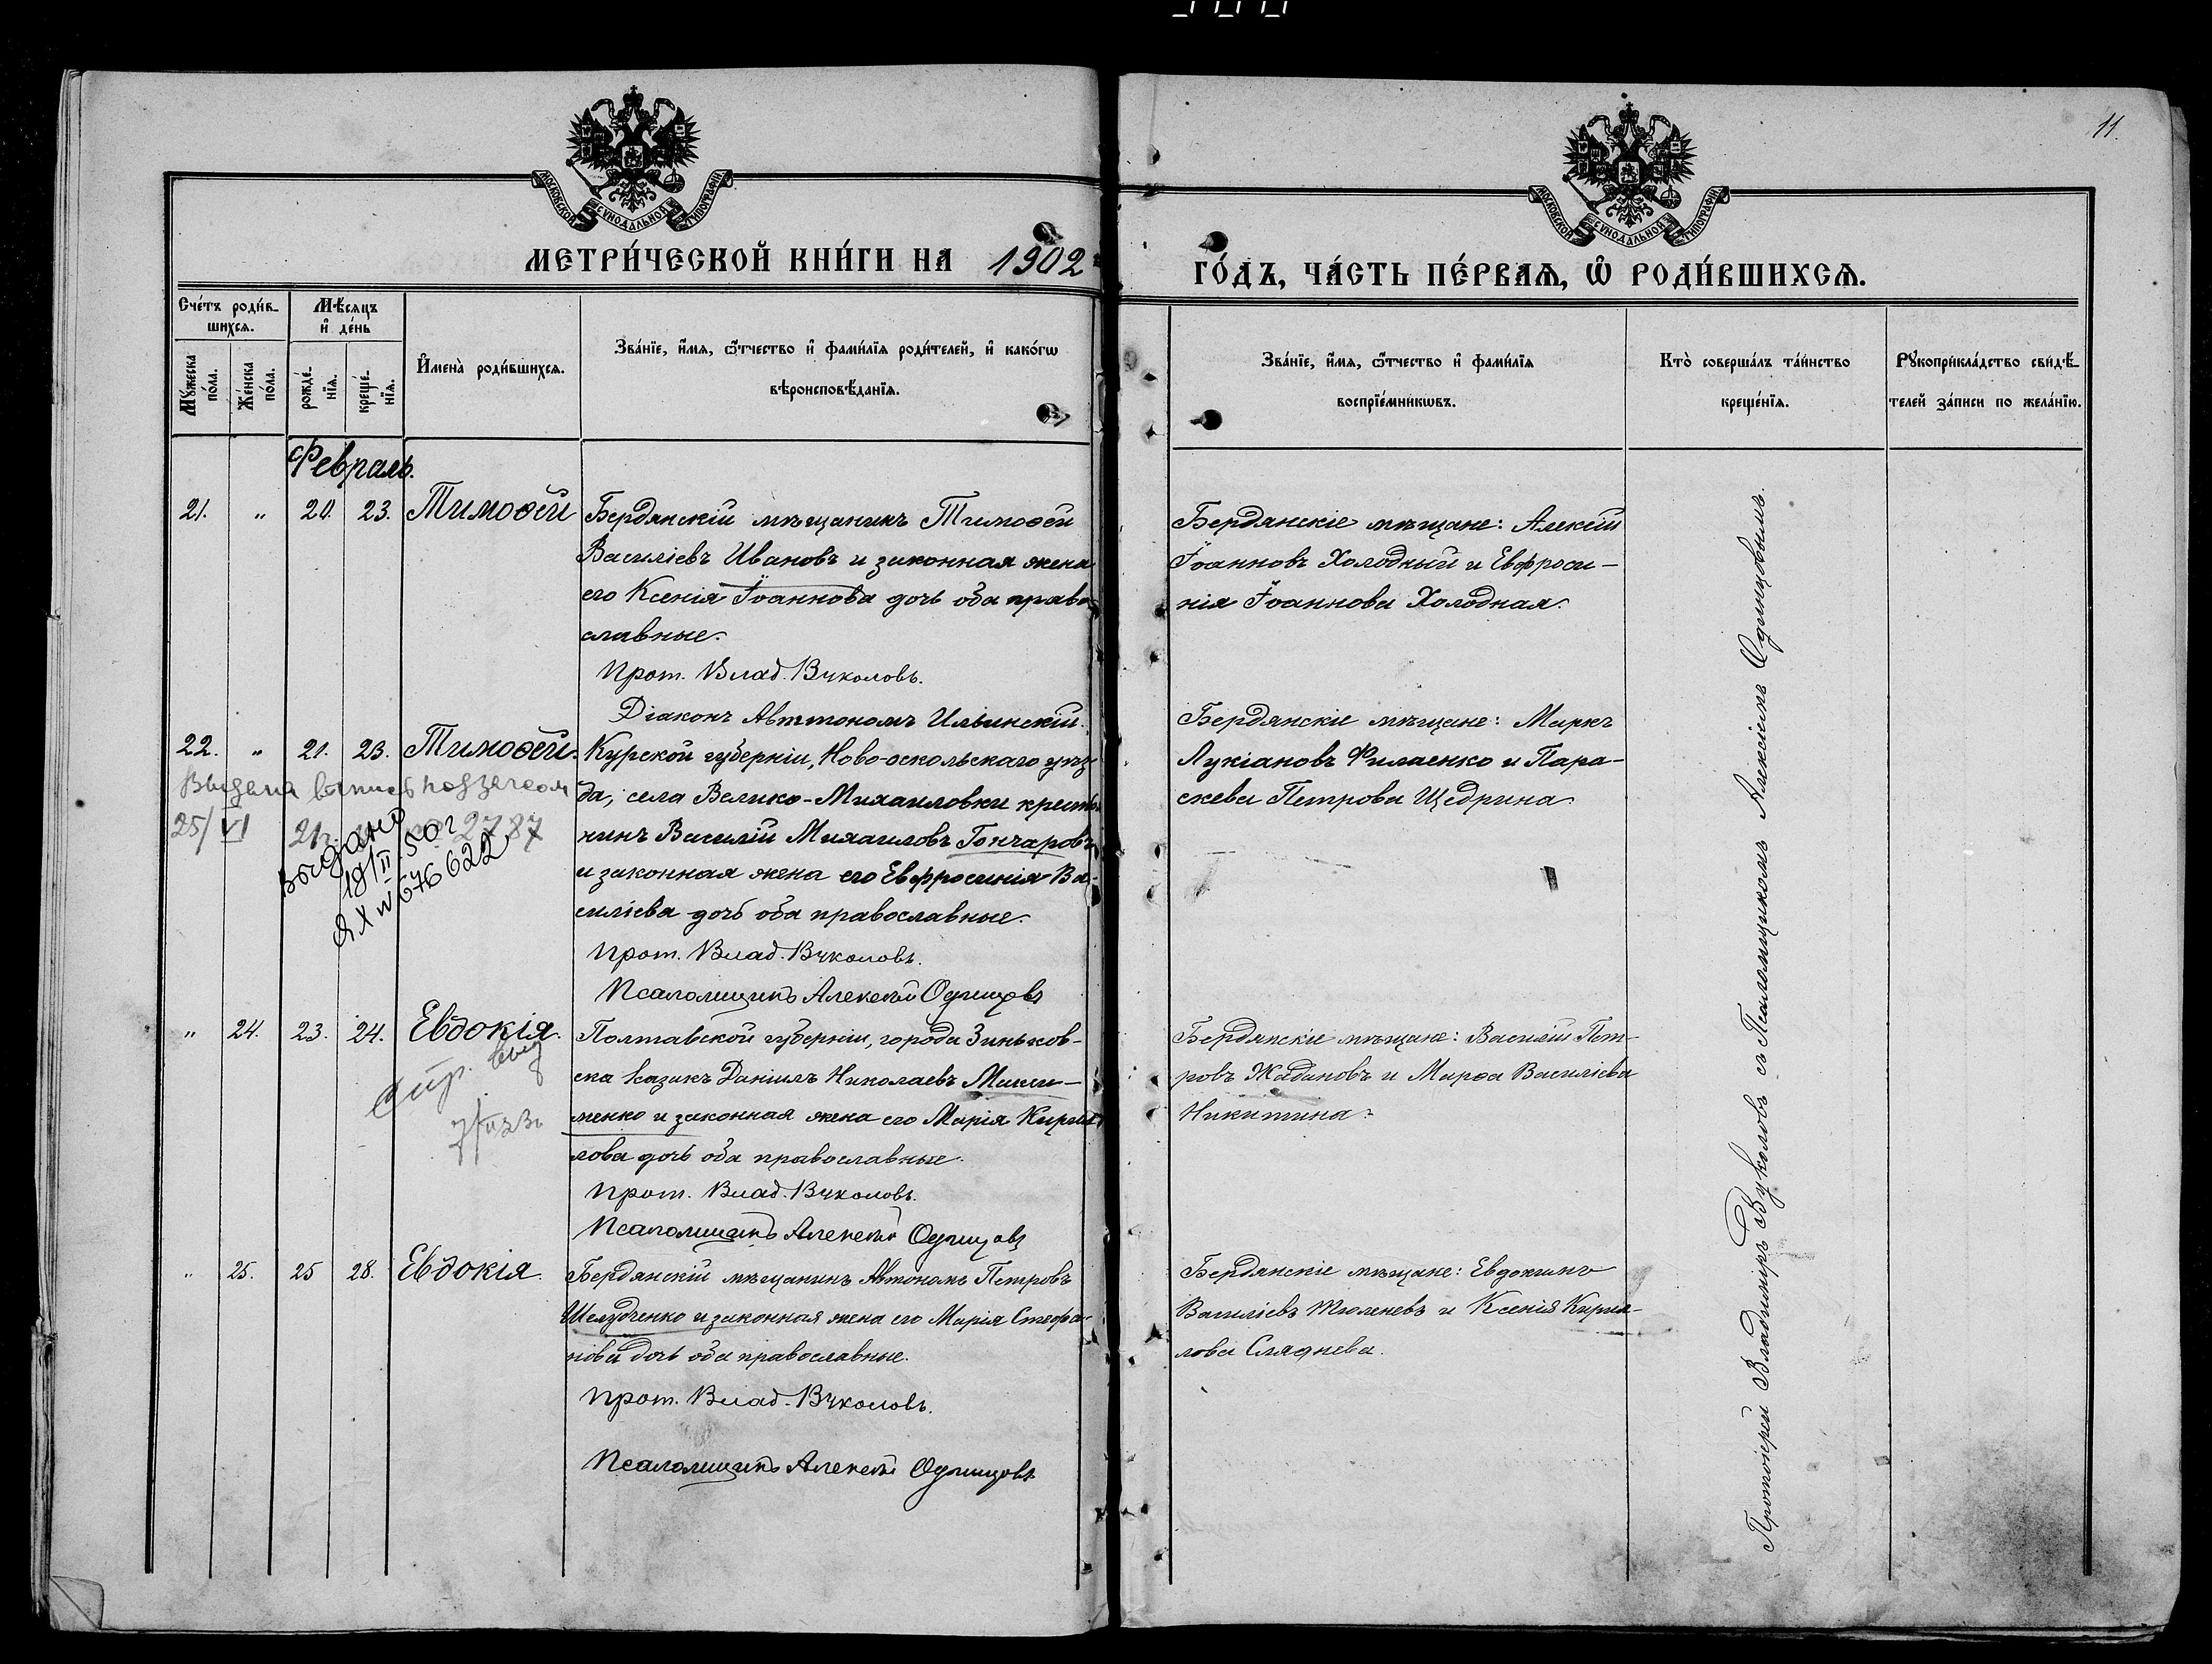 11.
МОСКОВСКОЙ СѴНОДАЛЬНОЙ ТИПОГРАФІИ
МОСКОВСКОЙ СѴНОДАЛЬНОЙ ТИПОГРАФІИ
МЕТРИ́ЧЕСКОЙ КНИ́ГИ НА 1902
ГО́ДЪ, ЧА́СТЬ ПЕ́РВАѦ, Ѽ РОДИ́ВШИХСѦ.
Сче́тъ роди́в-
шихсѧ.
Мꙋ́жеска по́ла.
Же́нска по́ла.
Мѣ́сѧцъ
и҆ де́нь
рожде́-
нїѧ.
креще́-
нїѧ.
И҆мена̀ роди́вшихсѧ.
Зва́нїе, и҆́мѧ, ѻ҆́тчество и҆ фами́лїѧ роди́телей, и҆ како́гѡ
вѣроисповѣ́данїѧ.
Зва́нїе, и҆́мѧ, ѻ҆́тчество и҆ фами́лїѧ
воспрїе́мникѡвъ.
Кто̀ соверша́лъ та́инство
креще́нїѧ.
Рꙋкоприкла́дство свидѣ́-
телей за́писи по жела́нїю.
Февраль.
21. " 20. 23. Тимоѳей
Бердянскій мѣщанинъ Тимоѳей
Василіевъ Ивановъ и законная жена
его Ксенія Іоаннова дочь оба право-
славные.
Прот. Влад. Вуколовъ.
Діаконъ Автономъ Ильинскій.
Бердянскіе мѣщане: Алексій
Іоанновъ Холодный и Евфроси-
нія Іоаннова Холодная.
22. " 21. 23. Тимоѳей.
Курской губерніи, Ново-оскольскаго уѣз-
да, села Велико-Михаиловки крестья-
нинъ Василій Михаиловъ Гончаровъ
и законная жена его Евфросинія Ва-
силіева дочь оба православные.
Прот. Влад. Вуколовъ.
Псаломщикъ Алексѣй Одинцовъ
Бердянскіе мѣщане: Маркъ
Лукіановъ Филаенко и Пара-
скева Петрова Щедрина.
25/VI 2787
выдано
19/II 50г
676622
" 24. 23. 24. Евдокія.
Полтавской губерніи, города Зиньков-
ска казакъ Даніилъ Николаевъ Макси-
менко и законная жена его Марія Кирил-
лова дочь оба православные.
Прот. Влад. Вуколовъ.
Псаломщикъ Алексѣй Одинцовъ
Бердянскіе мѣщане: Василій Пет-
ровъ Жадановъ и Марѳа Василіева
Никитина.
" 25. 25 28. Евдокія.
Бердянскій мѣщанинъ Автономъ Петровъ
Шелудченко и законная жена его Марія Стефа-
нова дочь оба православные.
Прот. Влад. Вуколовъ.
Псаломщикъ Алексѣй Одинцовъ
Бердянскіе мѣщане: Евдокимъ
Василіевъ Тюленевъ и Ксенія Кирил-
лова Сляднева.
Протоіерей Владиміръ Вуколовъ съ Псаломщикомъ Алексіемъ Одинцовымъ.